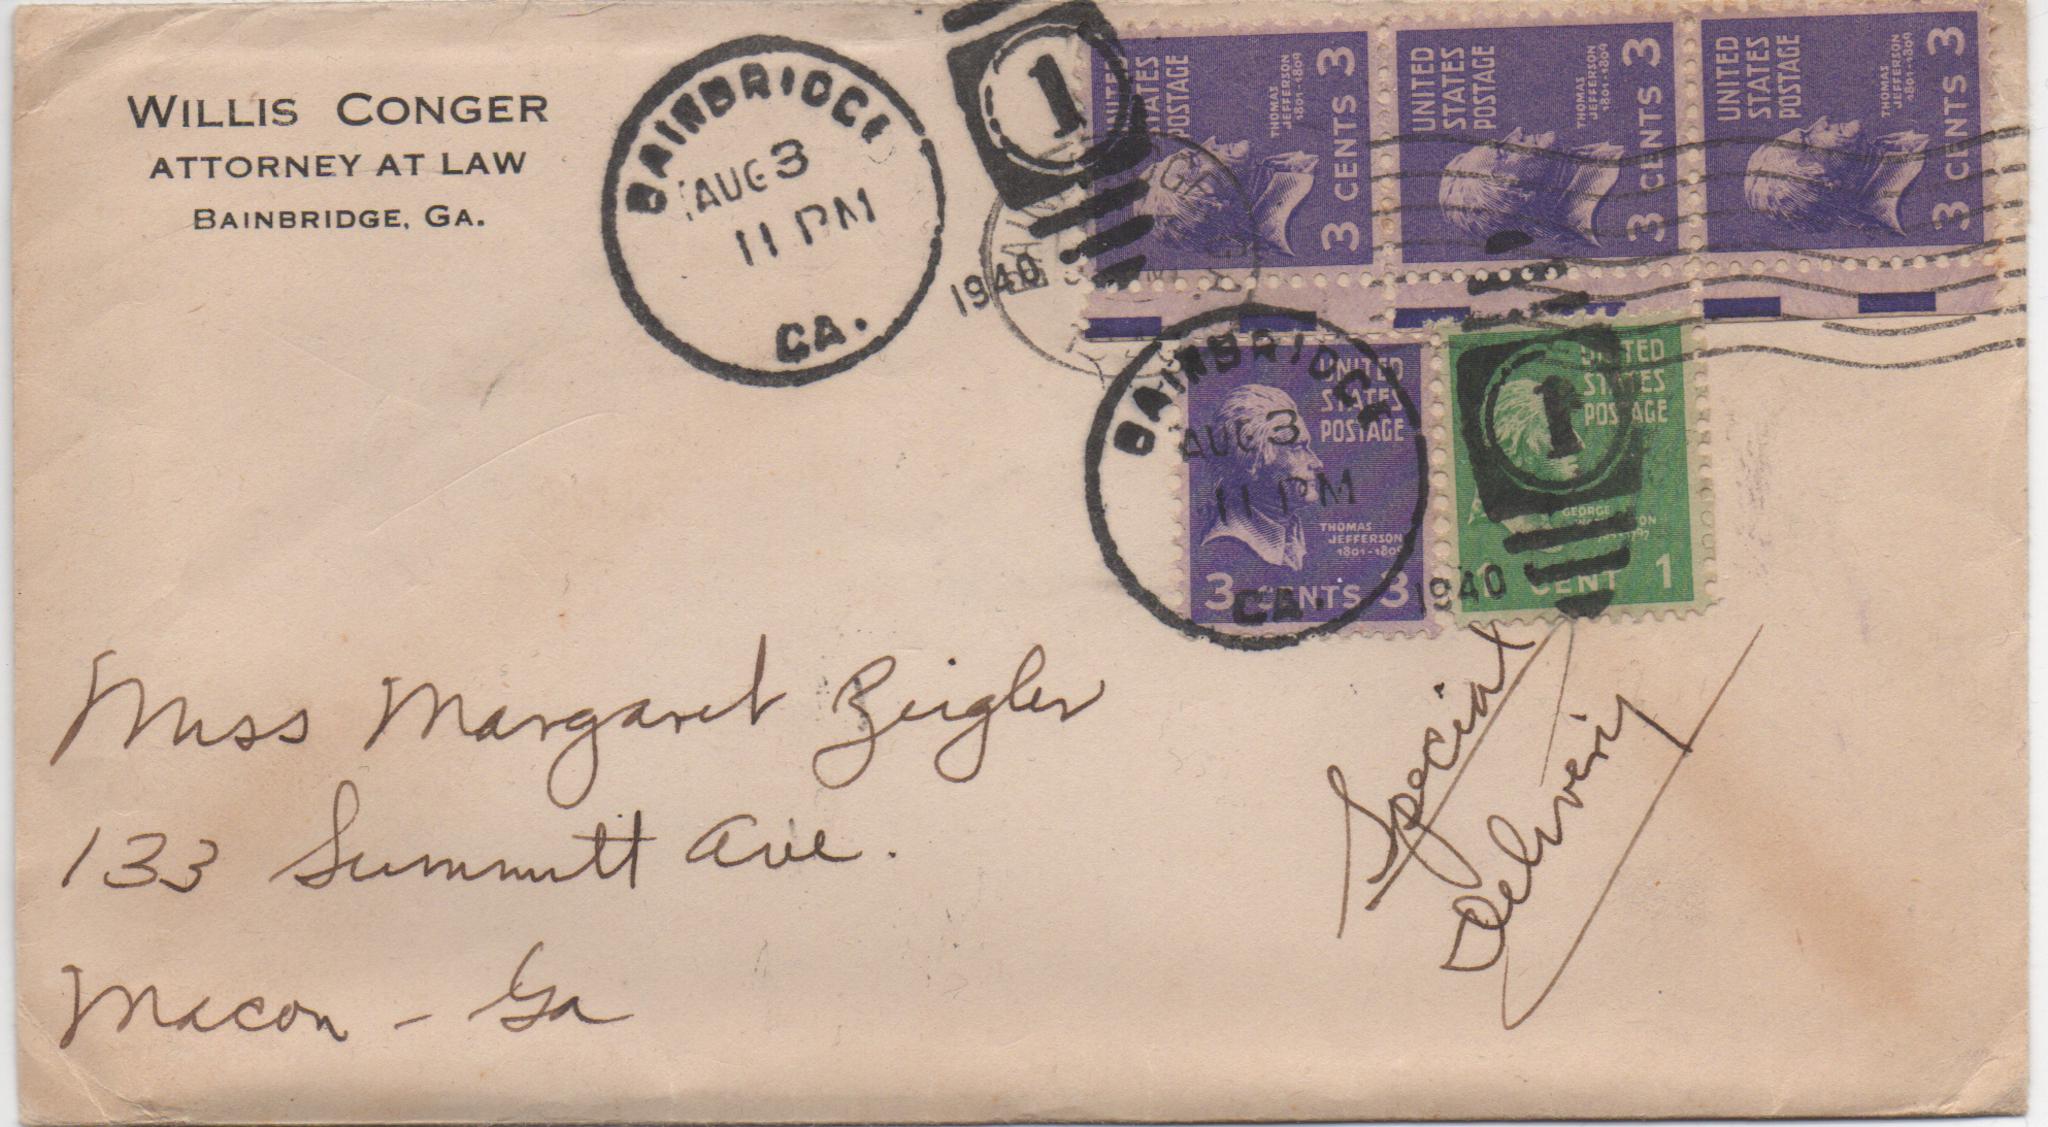 WILLIS CONGER
ATTORNEY AT LAW
BAINBRIDGE, GA.
BAINBRIDGE
AUG 3
11 PM
1940
GA.
1
UNITED
STATES
POSTAGE
THOMAS
JEFFERSON
1801-1809
3 CENTS 3
UNITED
STATES
POSTAGE
THOMAS
JEFFERSON
1801-1809
3 CENTS 3
UNITED
STATES
POSTAGE
THOMAS
JEFFERSON
1801-1809
3 CENTS 3
BAINBRIDGE
AUG 3
11 PM
1940
GA.
1
UNITED
STATES
POSTAGE
THOMAS
JEFFERSON
1801-1809
3 CENTS 3
UNITED
STATES
POSTAGE
GEORGE
1 CENT 1
Special
Delivery
Miss Margaret Zeigler
133 Summitt Ave.
Macon - Ga